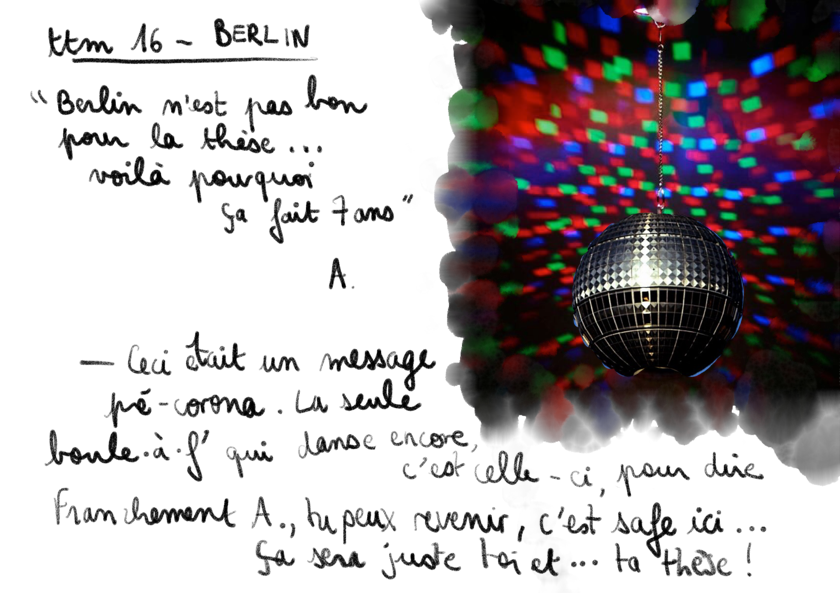 ttm 16 - BERLIN
"Berlin n'est pas bon
pour la thèse ...
voilà pourquoi
ça fait 7 ans"
A.
— Ceci était un message
pré-corona. La seule
boule·à·f' qui danse encore,
c'est celle-ci, pour dire
Franchement A., tu peux revenir, c'est safe ici ...
ça sera juste toi et ... ta thèse !